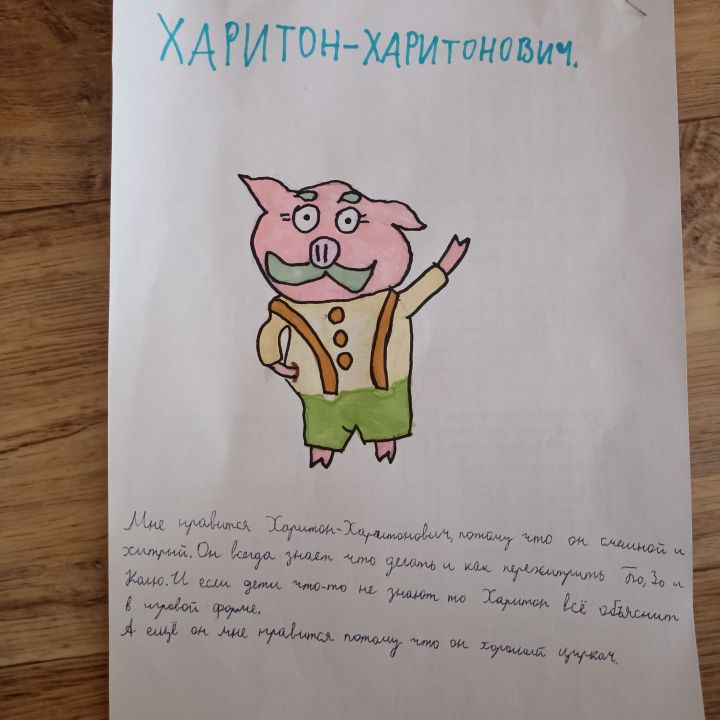 ХАРИТОН-ХАРИТОНОВИЧ.
Мне нравится Харитон-Харитонович, потому что он смешной и
хитрий. Он всегда знает что делать и как пережитрить Бо, Зо и
Колю. И если дети что-то не знают то Харитон всё объяснит
в игровой форме.
А ещё он мне нравится потому что он хороший циркач.